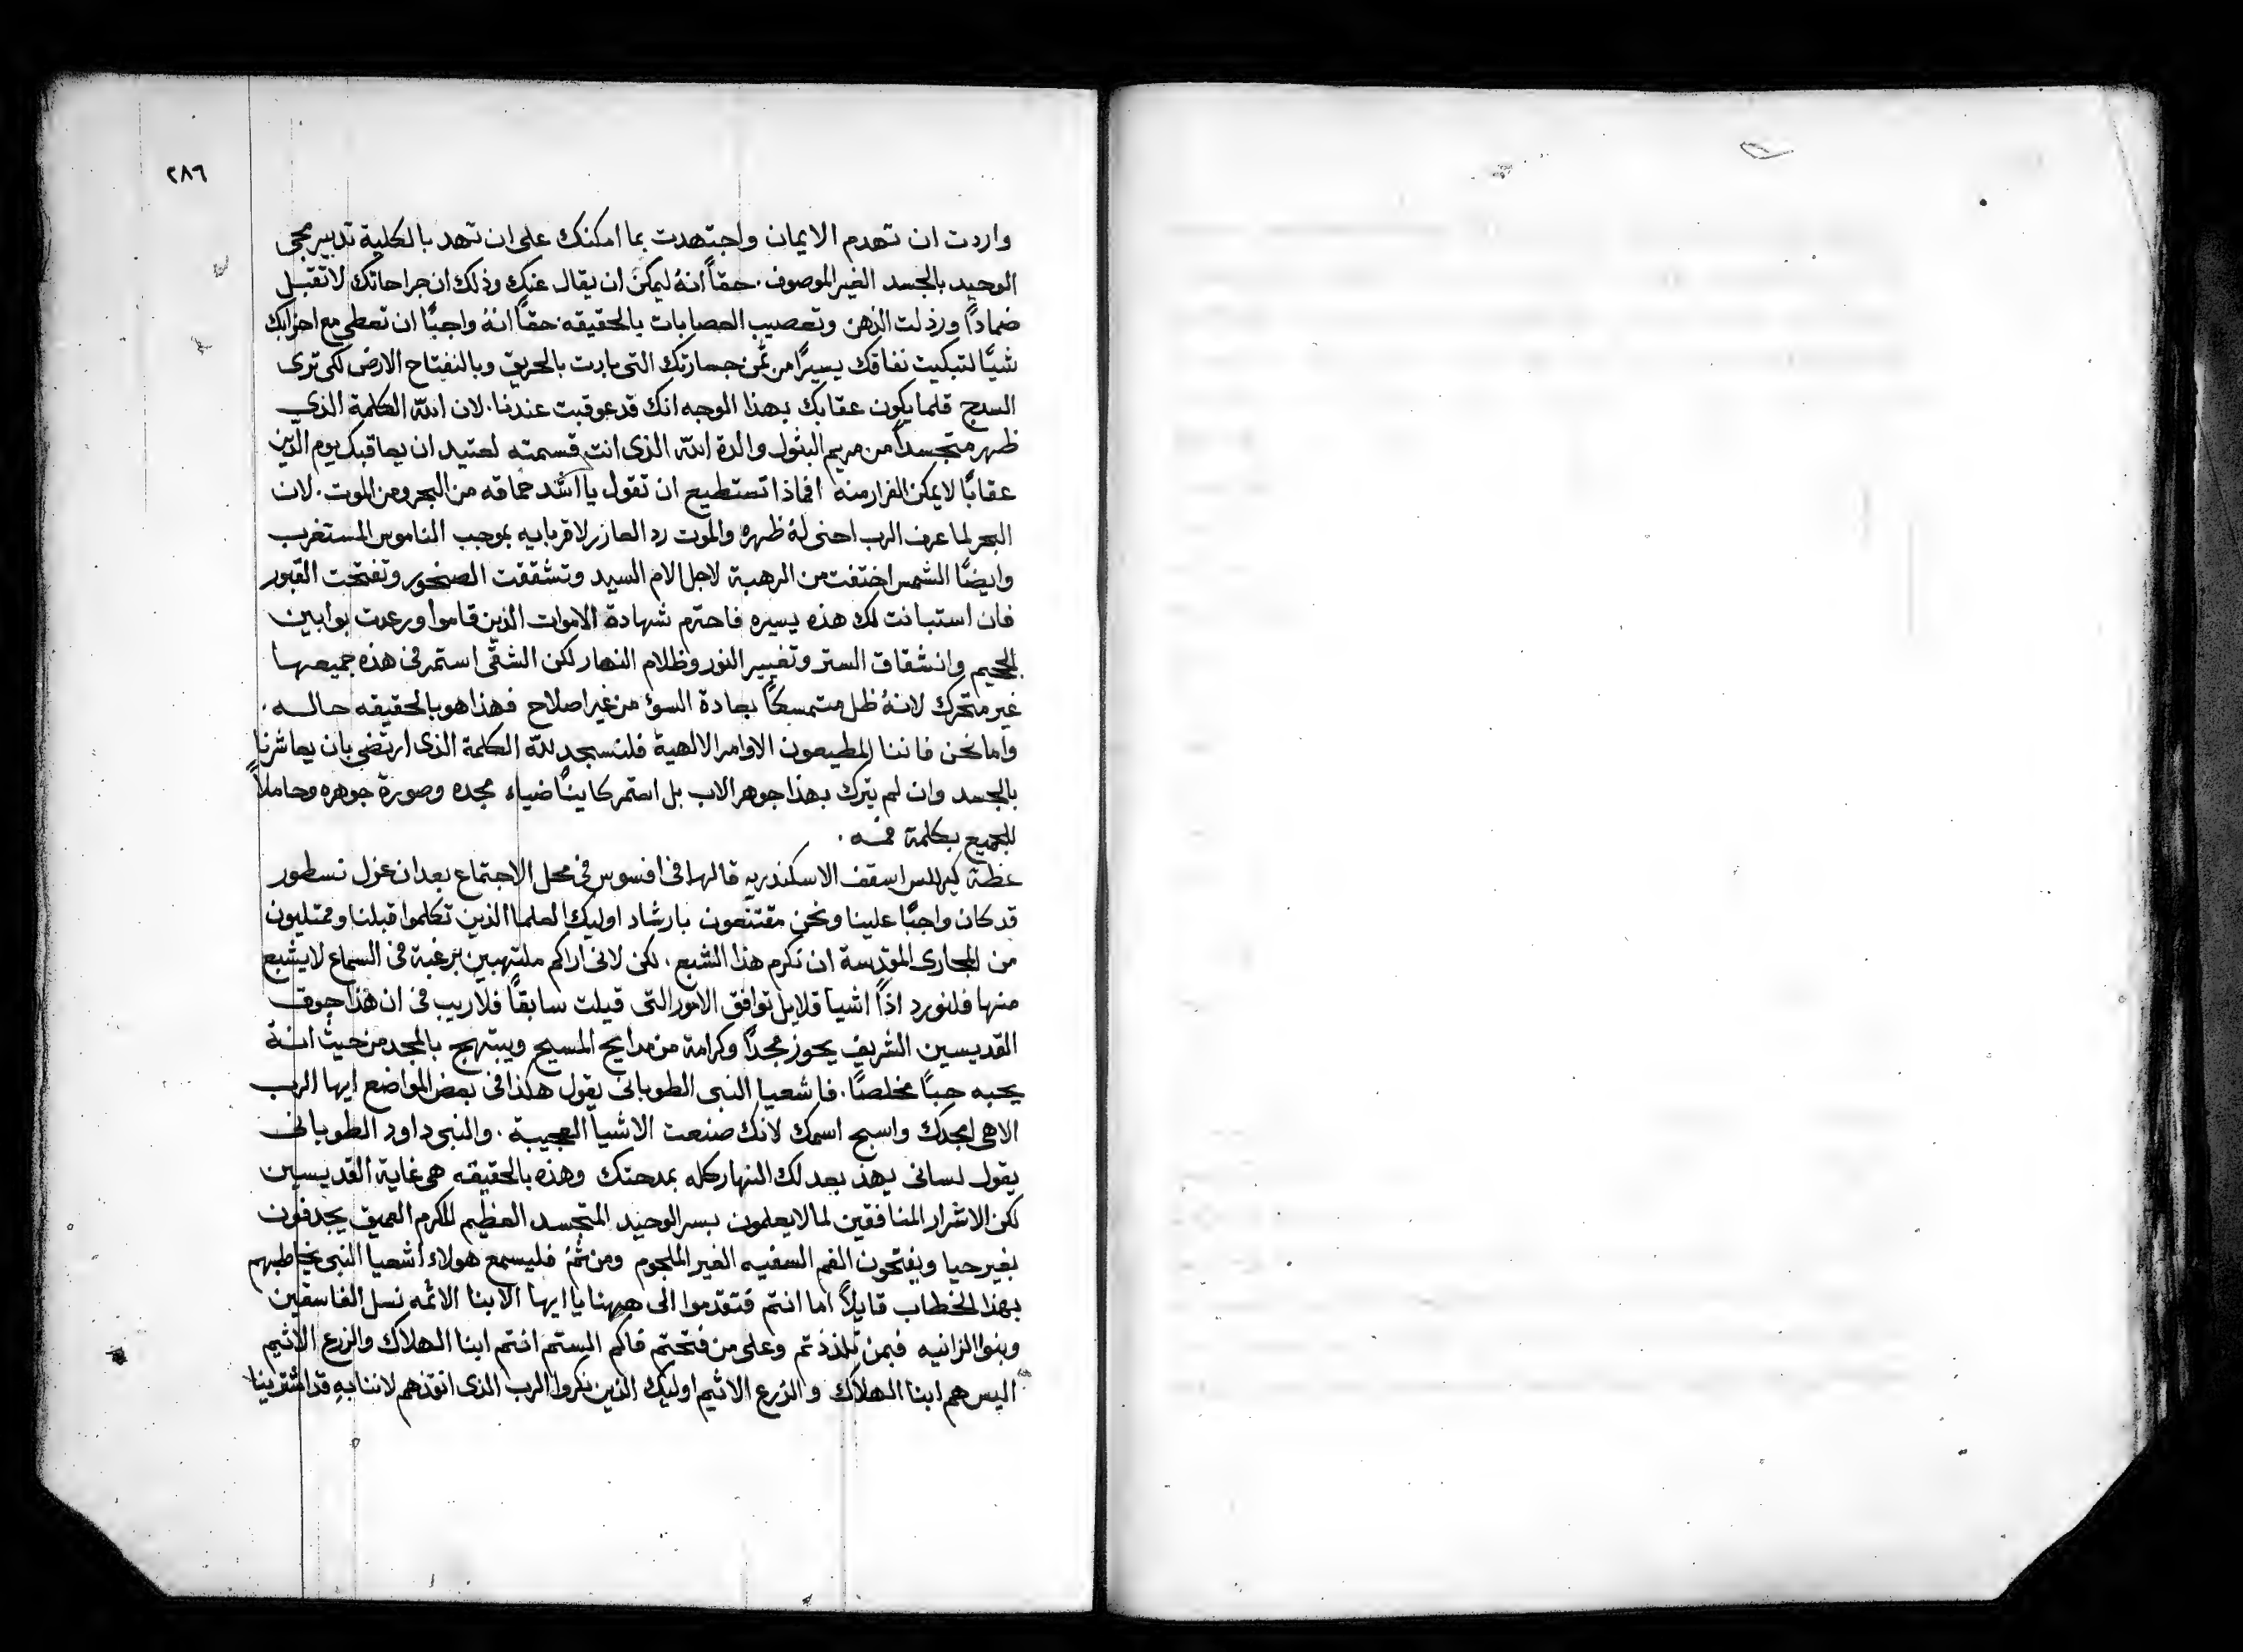 ٢٨٦
واردت ان تهدم الايمان واجتهدت بما امكنك على ان تهد بالكلية تدبير مجى
الوحيد بالجسد الغير الموصوف. حقاً انهُ ليمكن ان يقال عنك وذلك ان جراحاتك لا تقبل
ضماداً ورذلت الذهن وتعصيب العصابات بالحقيقه. حقاً انهُ واجبًا ان تعطى مع احزابك
شيًا لتبكيت نفاقك يسيرًا من ثمن جسارتك التى بادت بالحريق وبالنفتاح الارض لكى ترى
السدج قلما يكون عقابك بهذا الوجه انك قد عوقبت عندنا. لان الله الكلمة الذى
ظهر متجسداً من مريم البتول والدة الله الذى انت قسمته لعتيد ان يعاقبك يوم الدين
عقابًا لا يمكن الفرار منه افماذا تستطيع ان تقول يا اشد حماقه من البحر ومن الموت. لان
البحر لما عرف الرب احنى لهُ ظهره والموت رد العازر لاقربايه بموجب الناموس المستغرب
وايضًا الشمس اختفت من الرهبة لاجل الام السيد وتشققت الصخور وتفتحت القبور
فان استبانت لك هذه يسيره فاحترم شهادة الاموات الذين قاموا ورعدت بوابين
الجحيم وانشقاق الستر وتغيير النور وظلام النهار لكن الشقى استمر فى هذه جميعها
غير متحرك لانهُ ظل متمسكاً بجادة السؤ من غير اصلاح فهذا هو بالحقيقه حاله.
واما نحن فاننا المطيعون الاوامر الالهية فلنسجد لله الكلمة الذى ارتضى بان يعاشرنا
بالجسد وان لم يترك بهذا جوهر الاب بل استمر كاينًا ضياء مجده وصورة جوهره وحاملاً
للجميع بكلمة فمه.
عظة كيرللس اسقف الاسكندريه قالها فى افسوس فى محل الاجتماع بعد ان عزل نسطور
قد كان واجبًا علينا ونحن مقتنعون بارشاد اوليك العلما الذين تكلموا قبلنا وممتليون
من المجارى المقدسة ان نكرم هذا الشبع. لكن لانى اراكم ملتهبين برغبة فى السماع لا يشبع
منها فلنورد اذًا اشيا قلايل توافق الامور التى قيلت سابقًا فلا ريب فى ان هذا جوق
القديسين الشريف يحوز مجداً وكرامة من مدايح المسيح ويبتهج بالمجد من حيث انهُ
يحبه حبًا مخلصًا. فاشعيا النبى الطوبانى يقول هكذا فى بعض المواضع ايها الرب
الاهى امجدك واسبح اسمك لانك صنعت الاشيا العجيبة. والنبى داود الطوبانى
يقول لسانى يهذ بعدلك النهار كله بمدحتك وهذه بالحقيقه هى غاية القديسين
لكن الاشرار المنافقين لما لا يعلمون بسر الوحيد المتجسد العظيم المكرم العميق يجدفون
بغير حيا ويفتحون الفم السفيه الغير الملجوم ومن ثمَّ فليسمع هولاء اشعيا النبى يخاطبهم
بهذا الخطاب قايلاً اما انتم فتقدموا الى ههنا يا ايها الابنا الاثمه نسل الفاسقين
وبنوا الزانيه فبمن تلذذتم وعلى من فتحتم فاكم اليستم انتم ابنا الهلاك والزرع الاثيم
اليس هم ابنا الهلاك والزرع الاثيم اوليك الذين نكروا الرب الذى انقذهم لاننا به قد اشترينا